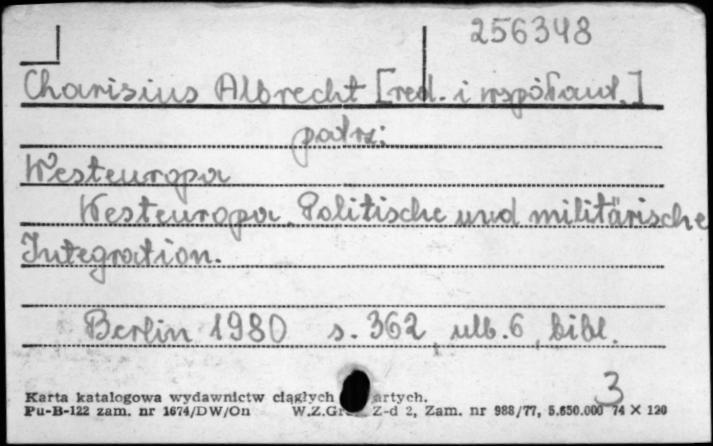 256348
Charisius Albrecht [red. i współaut.]
patrz:
Westeuropa
Westeuropa. Politische und militärische
Integration.
Berlin 1980 s. 362, ulb. 6, bibl.
3
Karta katalogowa wydawnictw ciągłych artych.
Pu-B-122 zam. nr 1674/DW/On W.Z.Gr Z-d 2, Zam. nr 988/77, 5.650.000 74 X 120